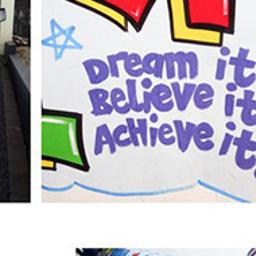 Dream it
Believe it
Achieve it